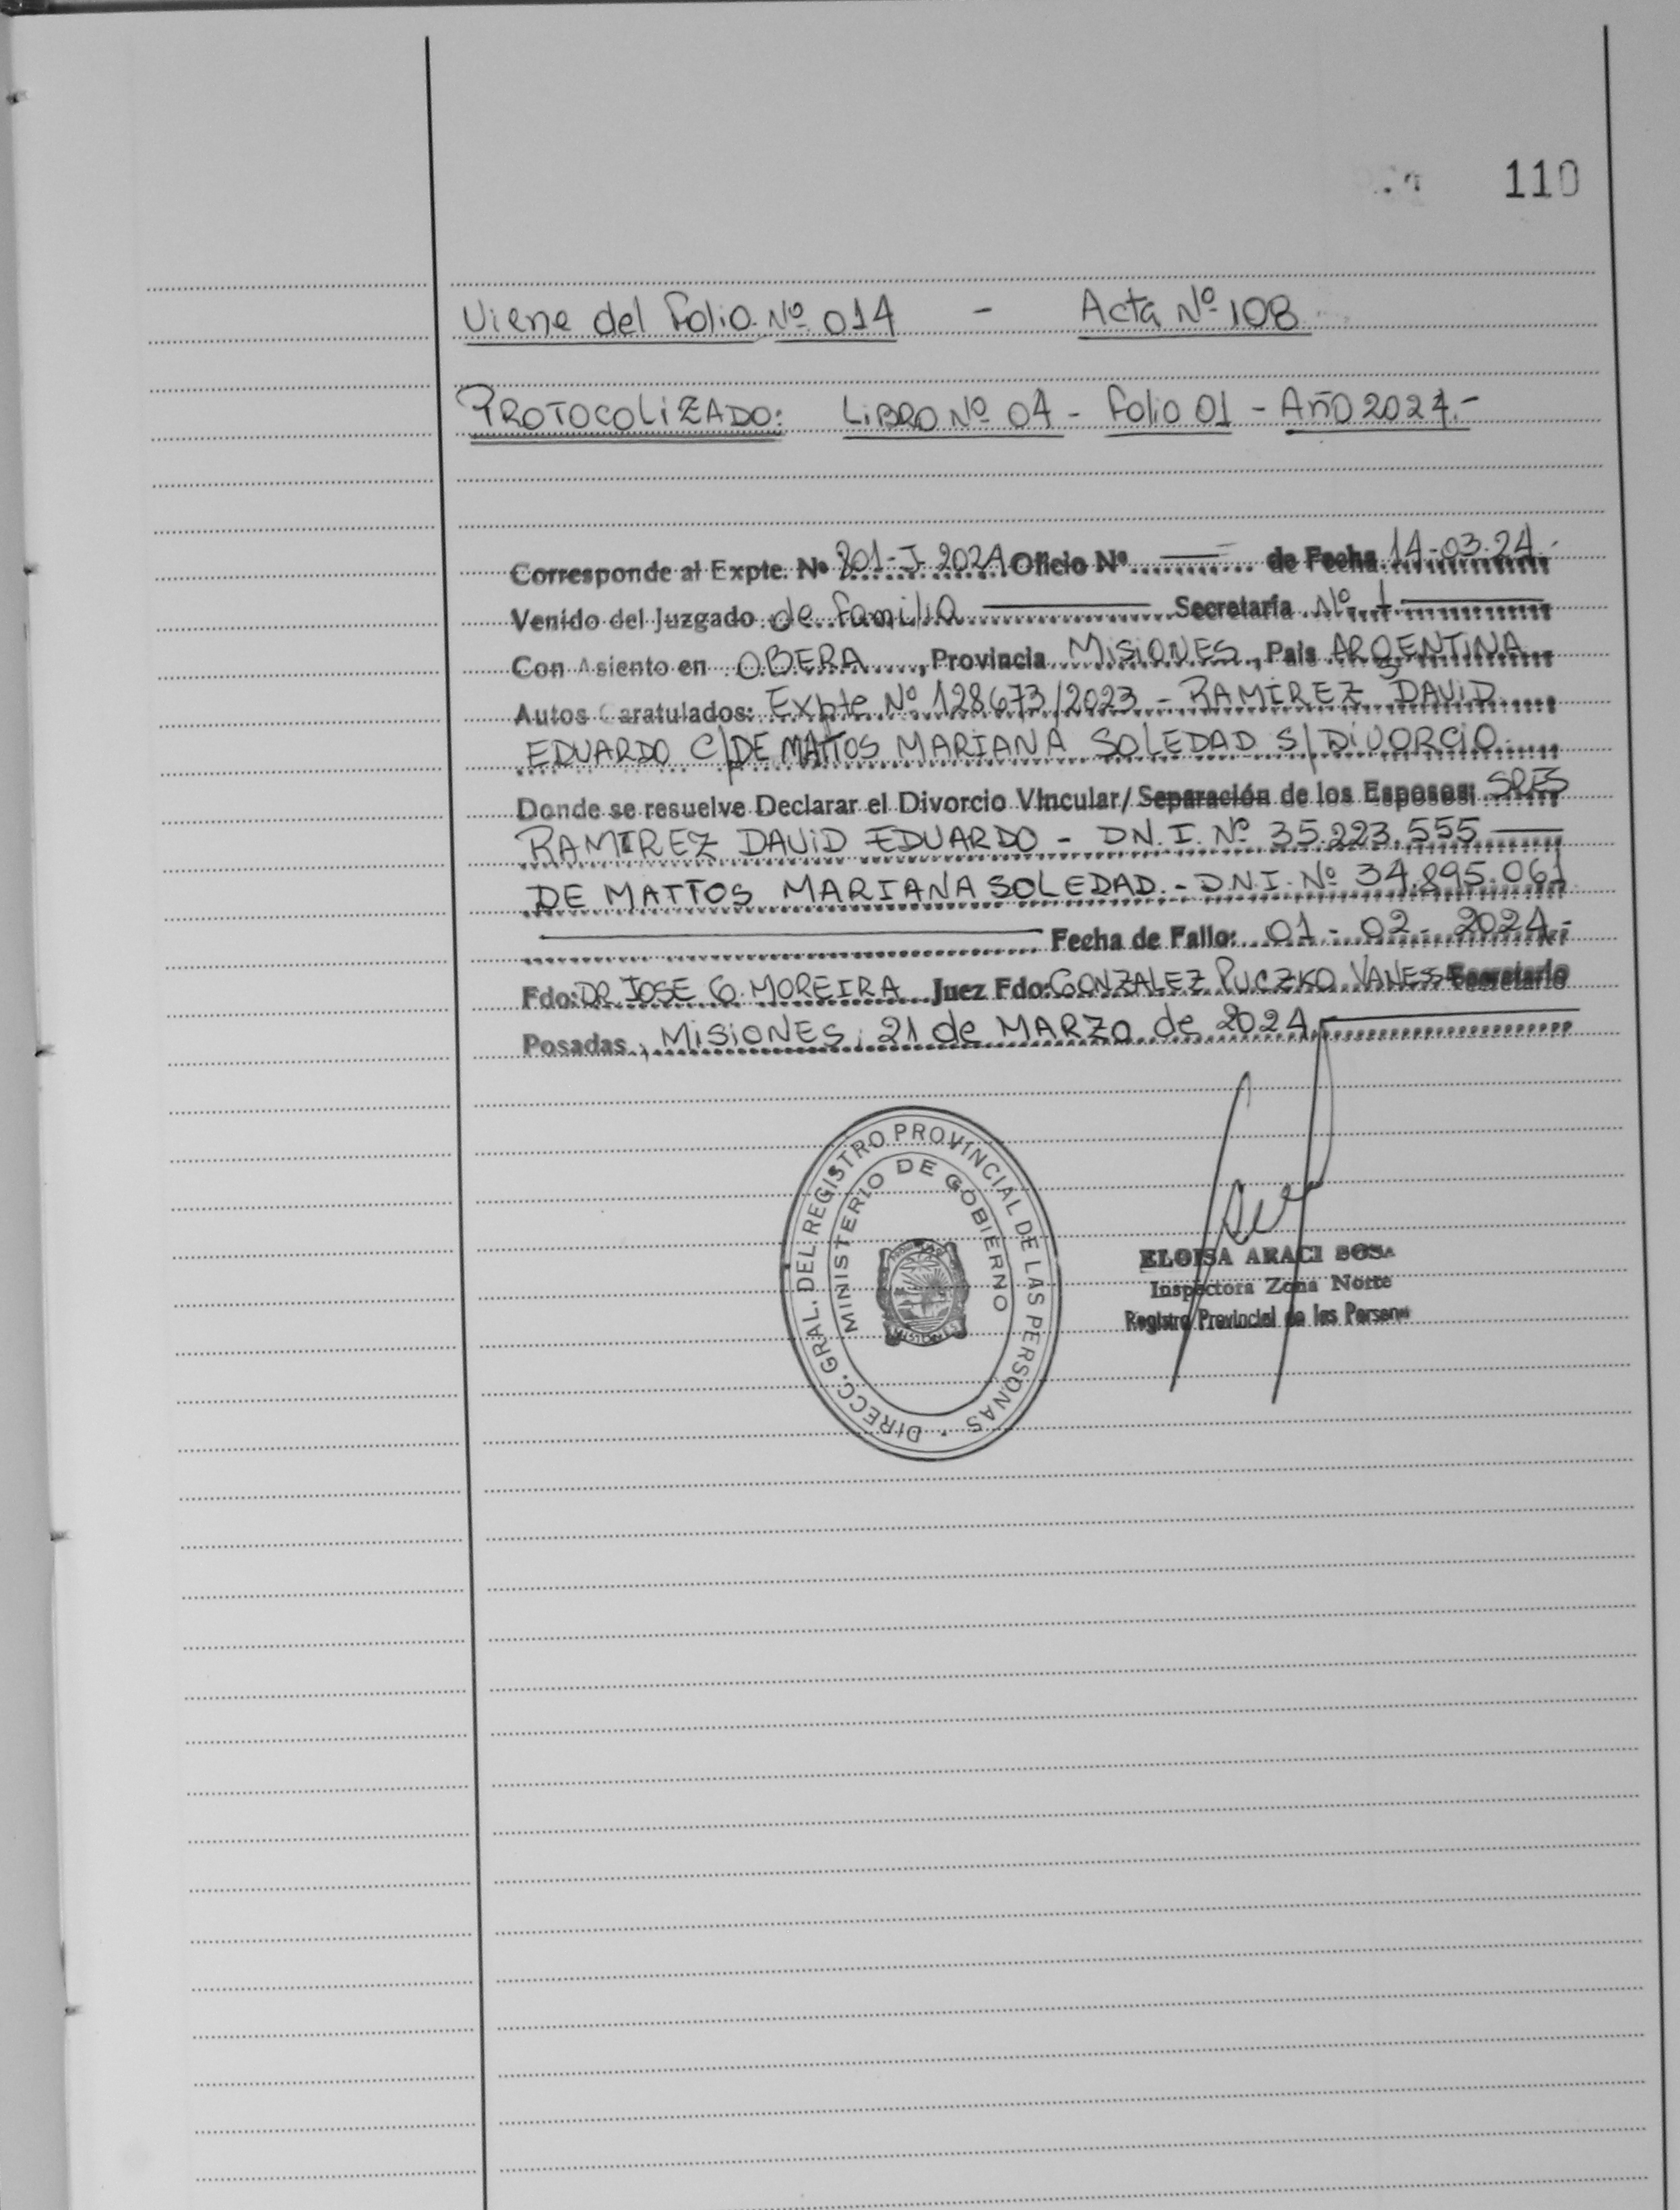 110
Viene del Folio Nº 014 - Acta Nº 108
PROTOCOLIZADO: LIBRO Nº 04 - Folio 01 - AÑO 2024.-
Corresponde al Expte. Nº 801-J-2024 Oficio Nº de Fecha 14-03-24.-
Venido del Juzgado de familia Secretaría Nº 1
Con Asiento en OBERA, Provincia MISIONES, Pais ARGENTINA
Autos Caratulados: Expte Nº 128673/2023 - RAMIREZ DAVID
EDUARDO C/DE MATTOS MARIANA SOLEDAD S/DIVORCIO
Donde se resuelve Declarar el Divorcio Vincular/Separación de los Esposos: SRES
RAMIREZ DAVID EDUARDO - D.N.I. Nº 35.223.555
DE MATTOS MARIANA SOLEDAD.- D.N.I. Nº 34.895.061
Fecha de Fallo: 01-02-2024.-
Fdo: DR JOSE G. MOREIRA Juez Fdo: GONZALEZ PUCZKO VANESSA Secretario
Posadas, MISIONES, 21 de MARZO de 2024.
DIRECC. GRAL. DEL REGISTRO PROVINCIAL DE LAS PERSONAS
MINISTERIO DE GOBIERNO
MISIONES
ELOISA ARACI SOSA
Inspectora Zona Norte
Registro Provincial de las Personas